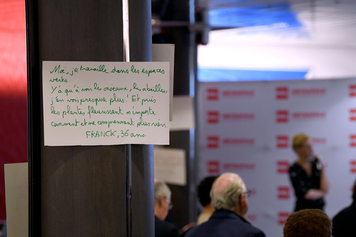 Moi, je travaille dans les espaces
verts.
Y'a qu'à voir les oiseaux, les abeilles,
j'en vois presque plus ! Et puis
les plantes fleurissent n'importe
comment et ne comprennent plus rien
FRANCK, 36 ans